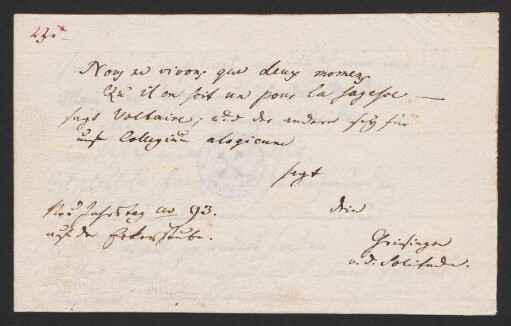 Nous ne vivons que deux momens
Qu'il en soit un pour la sagesse —
sagt Voltaire; und der andere sey für
unser Collegium alogicum
sagt
Neu Jahrstag ao 93. dein
auf der Eckenstube. Griesinger
v. d. Solitude.